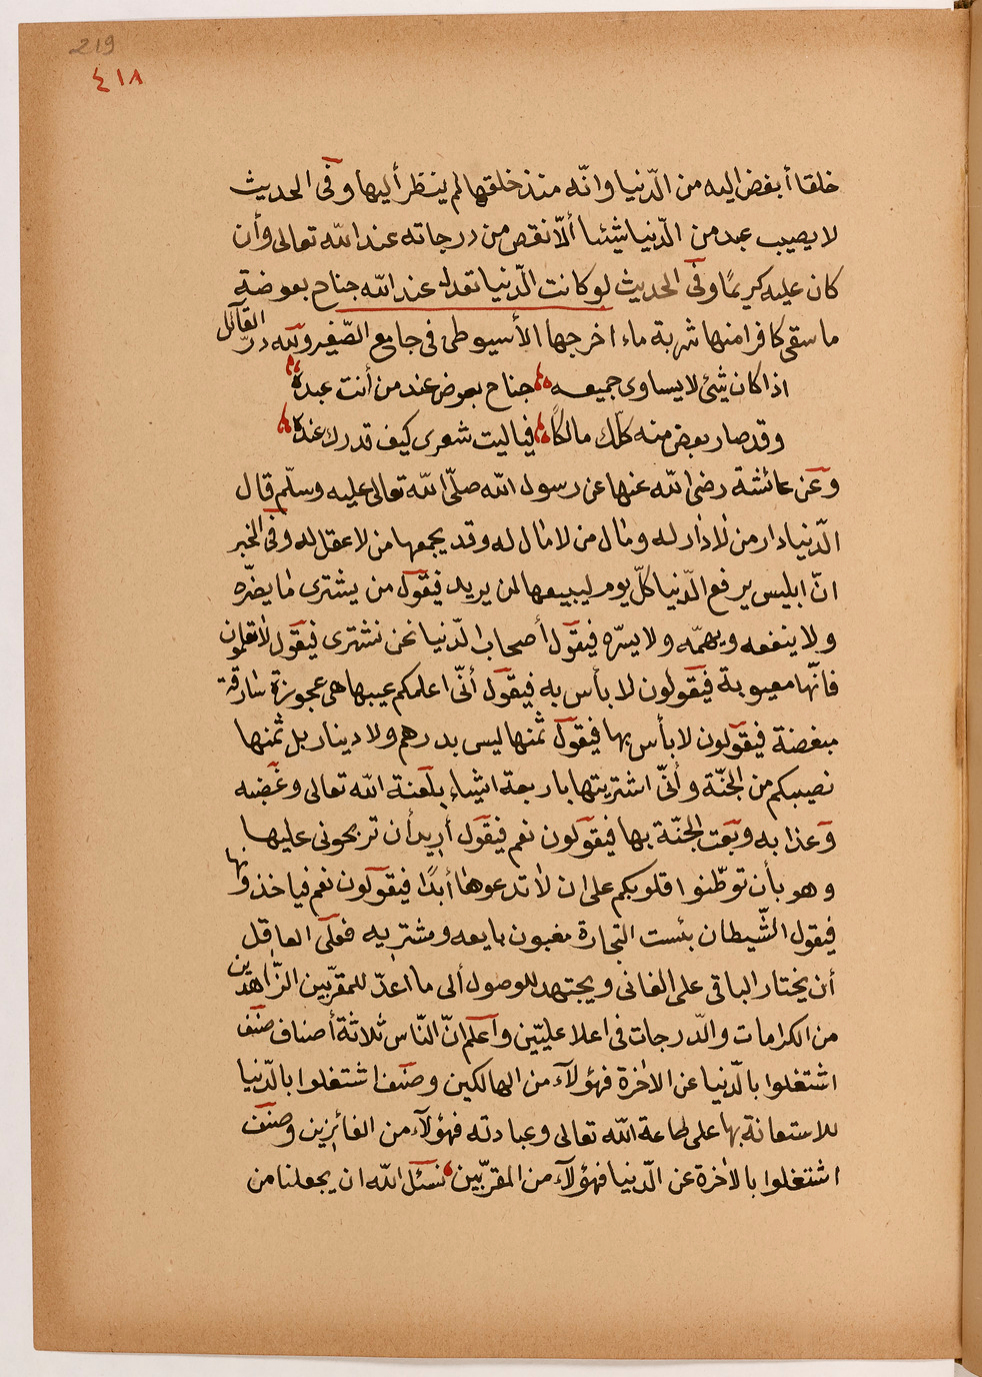 219
٤١٨
خلقا أبغض اليه من الدّنيا وانّه منذ خلقها لم ينظر أليها وفى الحديث
لا يصيب عبد من الدّنيا شيئا ألّا نقص من درجاته عند الله تعالى وأن
كان عليه كريمًا وفى الحديث لو كانت الدّنيا تعدل عند الله جناح بعوضة
ما سقى كافرا منها شربة ماء اخرجها الأسيوطى فى جامع الصّغير ولله درّ القائل
اذا كان شئ لا يساوى جميعه جناح بعوض عند من أنت عبده
وقد صار بعض منه كلّك مالكًا فياليت شعرى كيف قدرك عنده
وعن عائشة رضى الله عنها عن رسول الله صلّى الله تعالى عليه وسلّم قال
الدّنيا دار من لا دار له ومال من لا مال له وقد يجمعها من لا عقل له وفى الخبر
انّ ابليس يرفع الدّنيا كلّ يوم ليبيعها لمن يريد فيقول من يشترى ما يضرّه
ولا ينفعه ويهمّه ولا يسرّه فيقول أصحاب الدّنيا نحن نشترى فيقول
فانّها معيوبة فيقولون لا بأس به فيقول أنّى اعلمكم عيبها هى عجوزة سارقة
مبغضة فيقولون لا بأس بها فيقول ثمنها ليس بدرهم ولا دينار بل ثمنها
نصيبكم من الجنّة وأنّى اشتريتها باربعة اشياء بلعنة الله تعالى وغضبه
وعذابه وبعت الجنّة بها فيقولون نعم فيقول أريد أن تربحونى عليها
وهو بأن توطّنوا قلوبكم على ان لا تدعوها أبدًا فيقولون نعم فياخذونها
فيقول الشّيطان بئست التجارة مغبون بايعه ومشتريه فعلى العاقل
أن يختار الباقى على الفانى ويجتهد للوصول ألى ما اعدّ للمقرّبين الزّاهدين
من الكرامات والدّرجات فى اعلا علييّن وأعلم انّ النّاس ثلاثة أصناف صنف
اشتغلوا بالدّنيا عن الاخرة فهؤلآء من الهالكين وصنف اشتغلوا بالدّنيا
للاستعانة بها على طاعة الله تعالى وعبادته فهؤلآء من الفائزين وصنف
اشتغلوا بالاخرة عن الدّنيا فهؤلآء من المقرّبين نسئل الله ان يجعلنا من